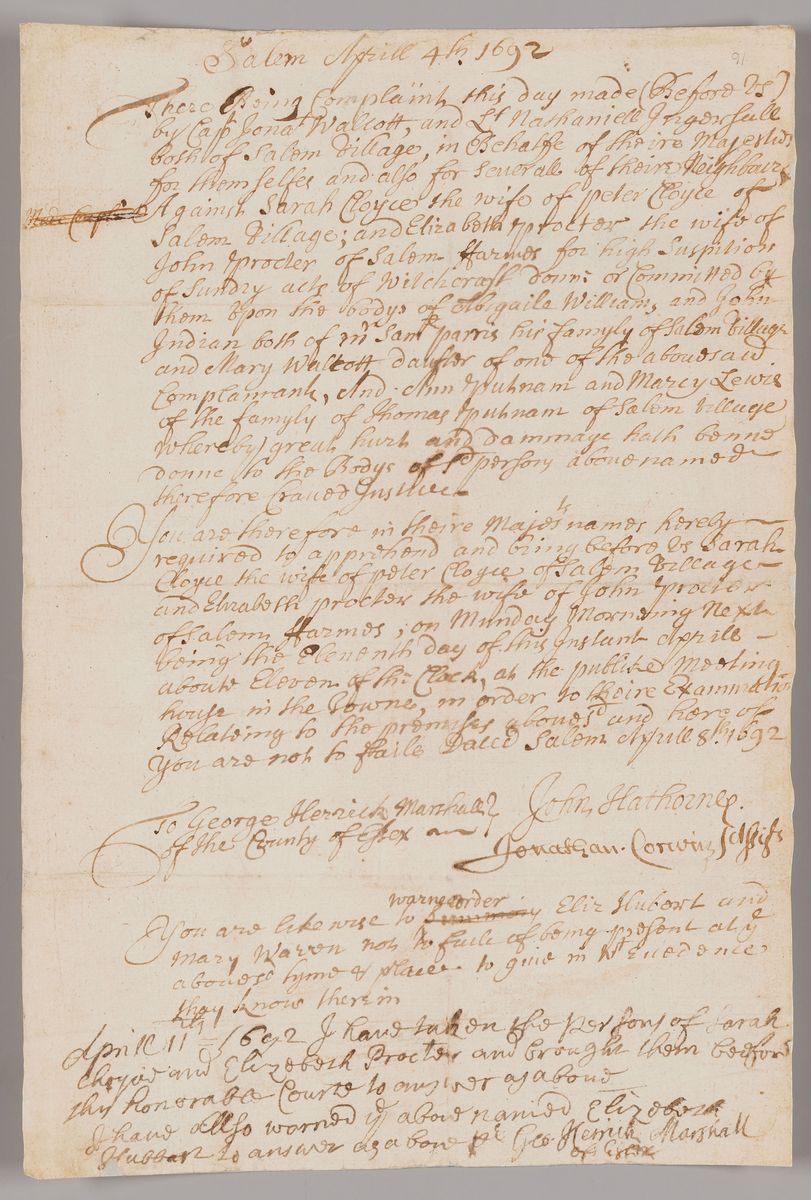 Salem Aprill 4th 1692
91
There Being Complaint this day made (Before Us)
by Capt Jonat Walcott, and Lt Nathaniell Ingersull
both of Salem Village, in Behalfe of theire Majesties
for themselfes and also for severall of theire Neighbours
Against Sarah Cloyce the wife of peter Cloyce of
Salem Village; and Elizabeth procter the wife of
John procter of Salem ffarmes for high Suspition
of Sundry acts of Witchcraft donne or Committed by
them upon the bodys of Abigaile William, and John
Indian both of mr Saml parris his famyly of Salem Village
and Mary Walcott daufter of one of the abovesaid
Complainants, And Ann putnam and Marcy Lewis
of the famyly of Thomas putnam of Salem Village
whereby great hurt and dammage hath benne
donne to the Bodys of sd persons above named
therefore Craved Justice
You are therefore in theire Majests names hereby
required to apprehend and bring before Us Sarah
Cloyce the wife of peter Cloyce of Salem Village
and Elizabeth procter the wife of John procter
of Salem ffarmes; on Munday Morneing Next
being the Eleventh day of this Instant Aprill
aboute Eleven of the Clock, at the publike Meeting
house in the Towne, in order to theire Examination
Relateing to the premises aboves'd and here of
You are not to ffaile Dated Salem Aprill 8th 1692
To George Herrick Marshall
of the County of Essex
John Hathorne
Jonathan Corwin Assists
warne order
You are likewise to Eliz Hubert and
Mary Warren not to faile of being present at ye
abovesd tyme & place to give in wt Evedence
they know therein
Aprill 11th 1692 I have taken the persons of Sarah
Cloyce and Elizebeth Procter and brought them before
this honorable Courte to answer as above
I have allso warned ye above named Elizebeth
Hubbart to answer as above pr Geo Herrick Marshall
of Essex